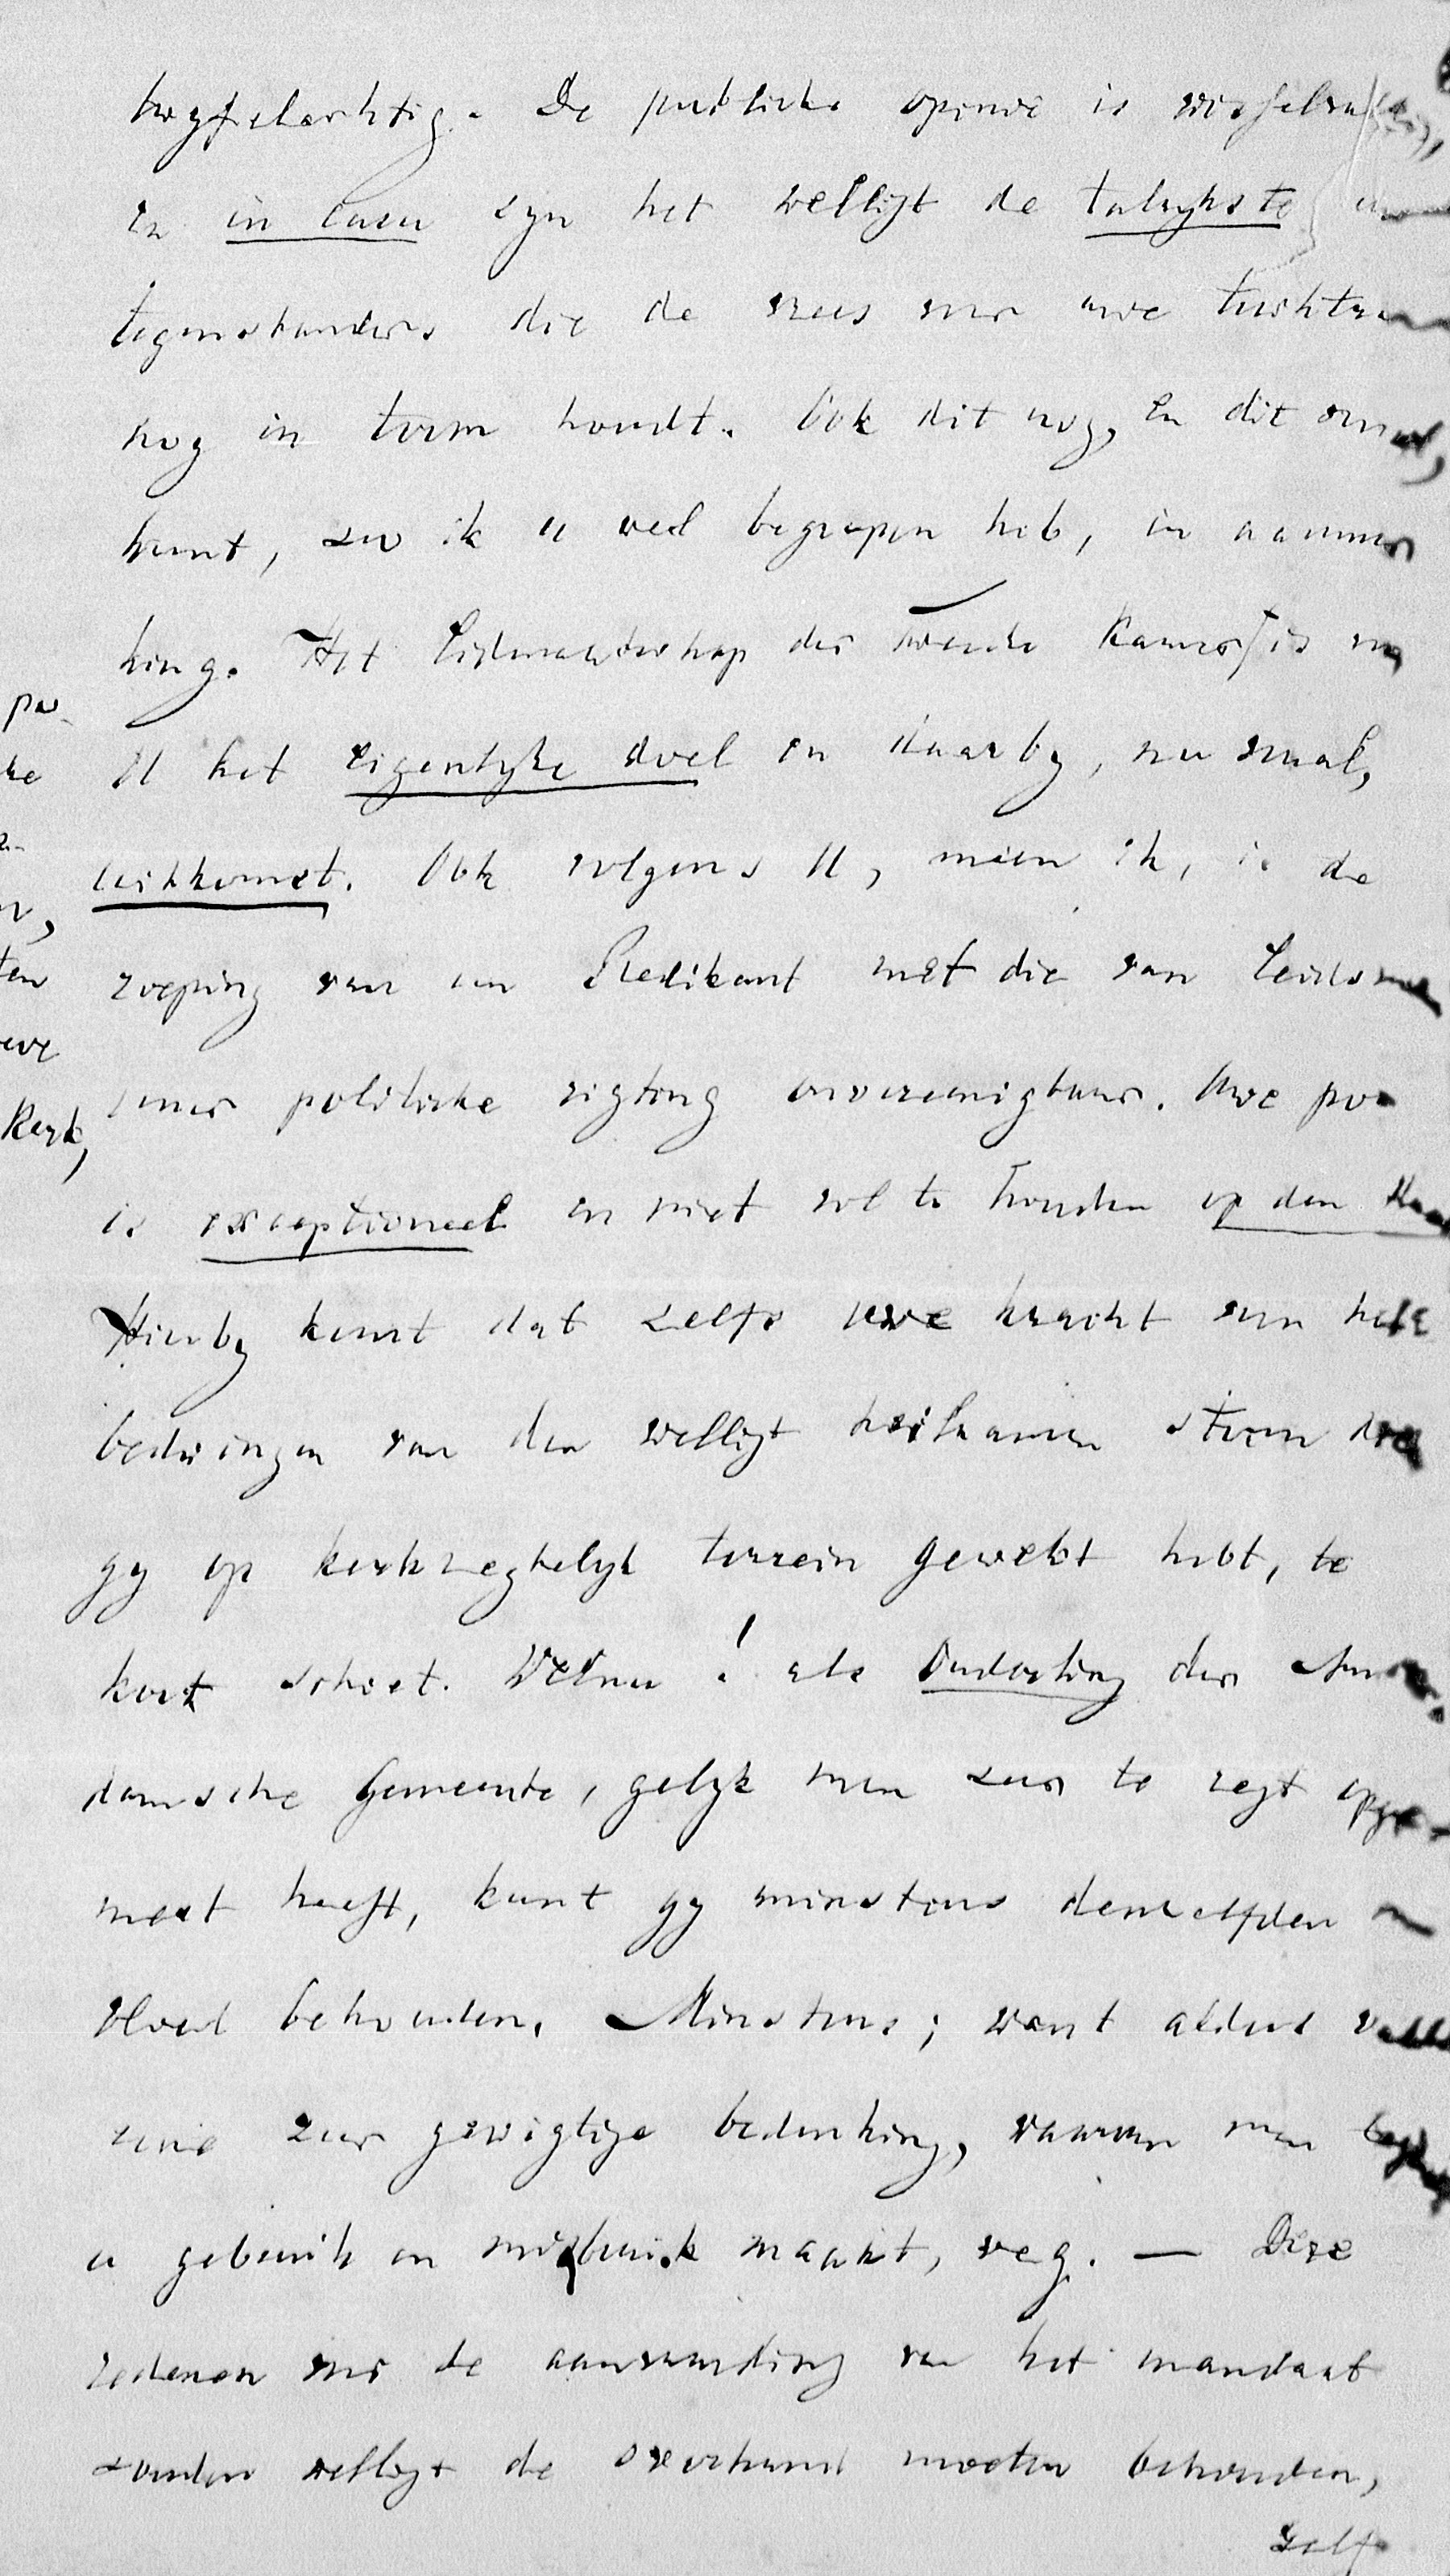 twyfelachtig. De publieke opinie is
en in casu zyn het welligt de talrykste
tegenstanders die de vrees voor uwe
nog in toom houdt. Ook dit nog, en dit vooral,
komt, zoo ik u wel begrepen heb, in aanmer
king. Het Lidmaatschap der Tweede Kamer is voor
U het eigenlyke doel en daarby, nu vooral,
uitkomst. Ook volgens U, meen ik, is de
roeping van een Predikant met die van
eener politieke rigting onvereenigbaar. Uwe po
is exceptioneel en niet vol te houden op den
Hierby komt dat zelfs uwe kracht voor het
bedwingen van den welligt heilzamen storm dien
gy op kerkregtelyk terrein gewekt hebt, te
kort schiet. Welnu! als Ouderling der Amster
damsche Gemeente, gelyk men zeer te regt opge-
merkt heeft, kunt gy minstens denzelfden in
vloed behouden. Minstens; want aldus valt
eene zeer gewigtige bedenking, waarvan men tegen
u gebruik en misbruik maakt, weg. — Deze
redenen voor de aanvaarding van het mandaat
zouden welligt de overhand moeten behouden,
zelfs
pos-
ke
ten
uwe
Kerk,